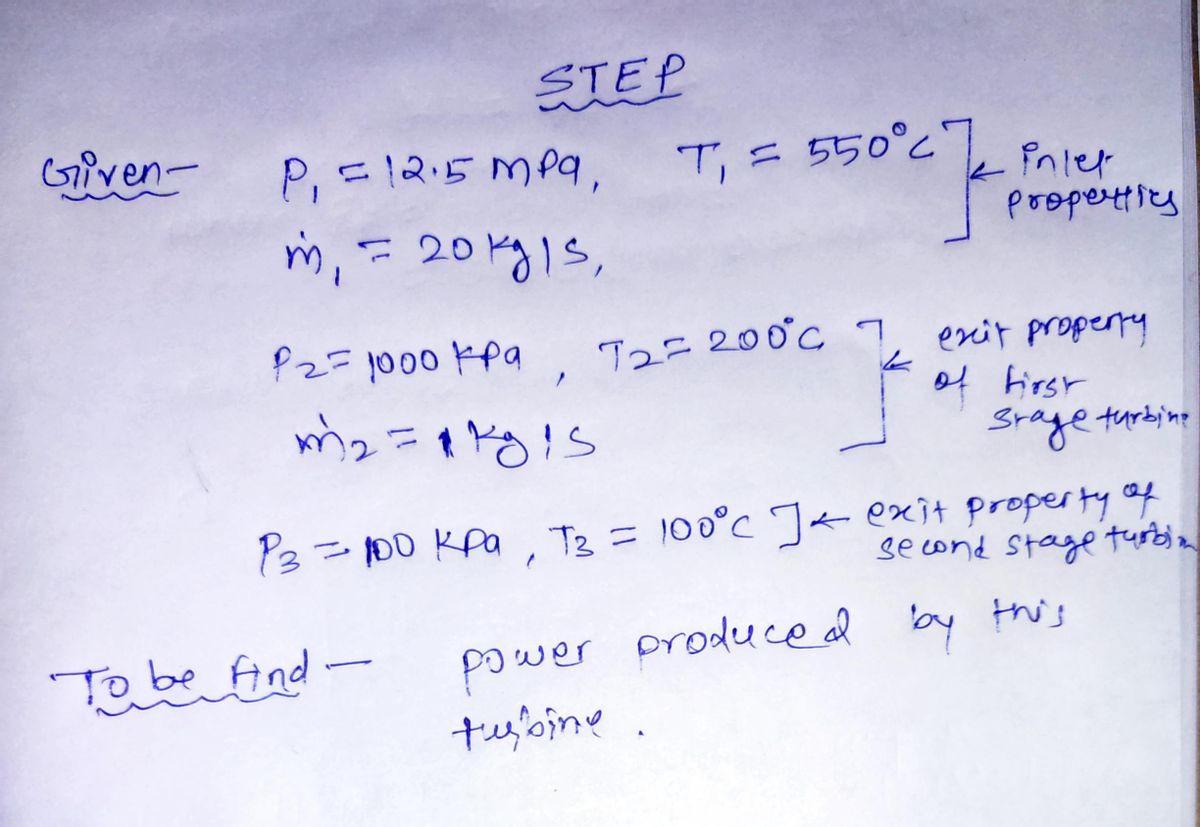 STEP
Given- P₁ = 12.5 MPa, T₁ = 550°C ] ← inlet
properties
ṁ₁ = 20 kg/s,
P₂ = 1000 KPa, T₂ = 200°C ] ← exit property
of first
stage turbine
ṁ₂ = 1 kg/s
P₃ = 100 KPa, T₃ = 100°C ] ← exit property of
second stage turbin
To be find - power produced by this
turbine.